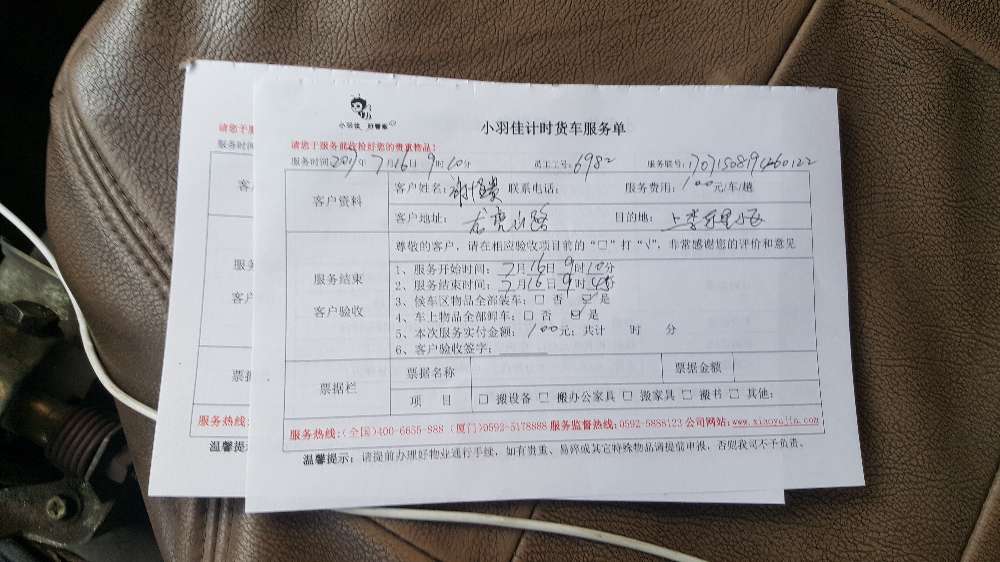 小羽佳 好管家
小羽佳计时货车服务单
请您于服务前收检好您的贵重物品！
服务时间：2017年7月16日9时10分 员工工号：6982 服务联号：
客户资料
客户姓名： 联系电话： 服务费用：100元/车/趟
客户地址：龙虎山路 目的地：上李
尊敬的客户，请在相应验收项目前的“□”打“√”，非常感谢您的评价和意见
服务结束
客户验收
1、服务开始时间：7月16日9时10分
2、服务结束时间：7月16日9时45分
3、候车区物品全部装车：□ 否 ☑ 是
4、车上物品全部卸车：□ 否 ☑ 是
5、本次服务实付金额：100元；共计 时 分
6、客户验收签字：
票据栏
票据名称 票据金额
项 目 □ 搬设备 □ 搬办公家具 □ 搬家具 □ 搬书 □ 其他：
服务热线：（全国）400-6655-888（厦门）0592-5178888 服务监督热线：0592-5888123 公司网站：www.xiaoyujia.com
温馨提示：请提前办理好物业通行手续，如有贵重、易碎或其它特殊物品请提前申报，否则我司不予负责。
请您于服
服务时间
客
服务
客户
票据
服务热线：
温馨提示